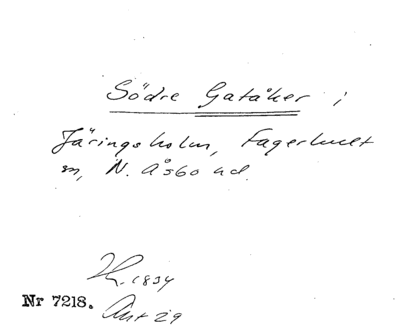 Södre Gatåker i
Järingsholm, Fagerhult
sn, N. Åsbo hd.
Lh. 1834
Nr 7218.
Akt 29